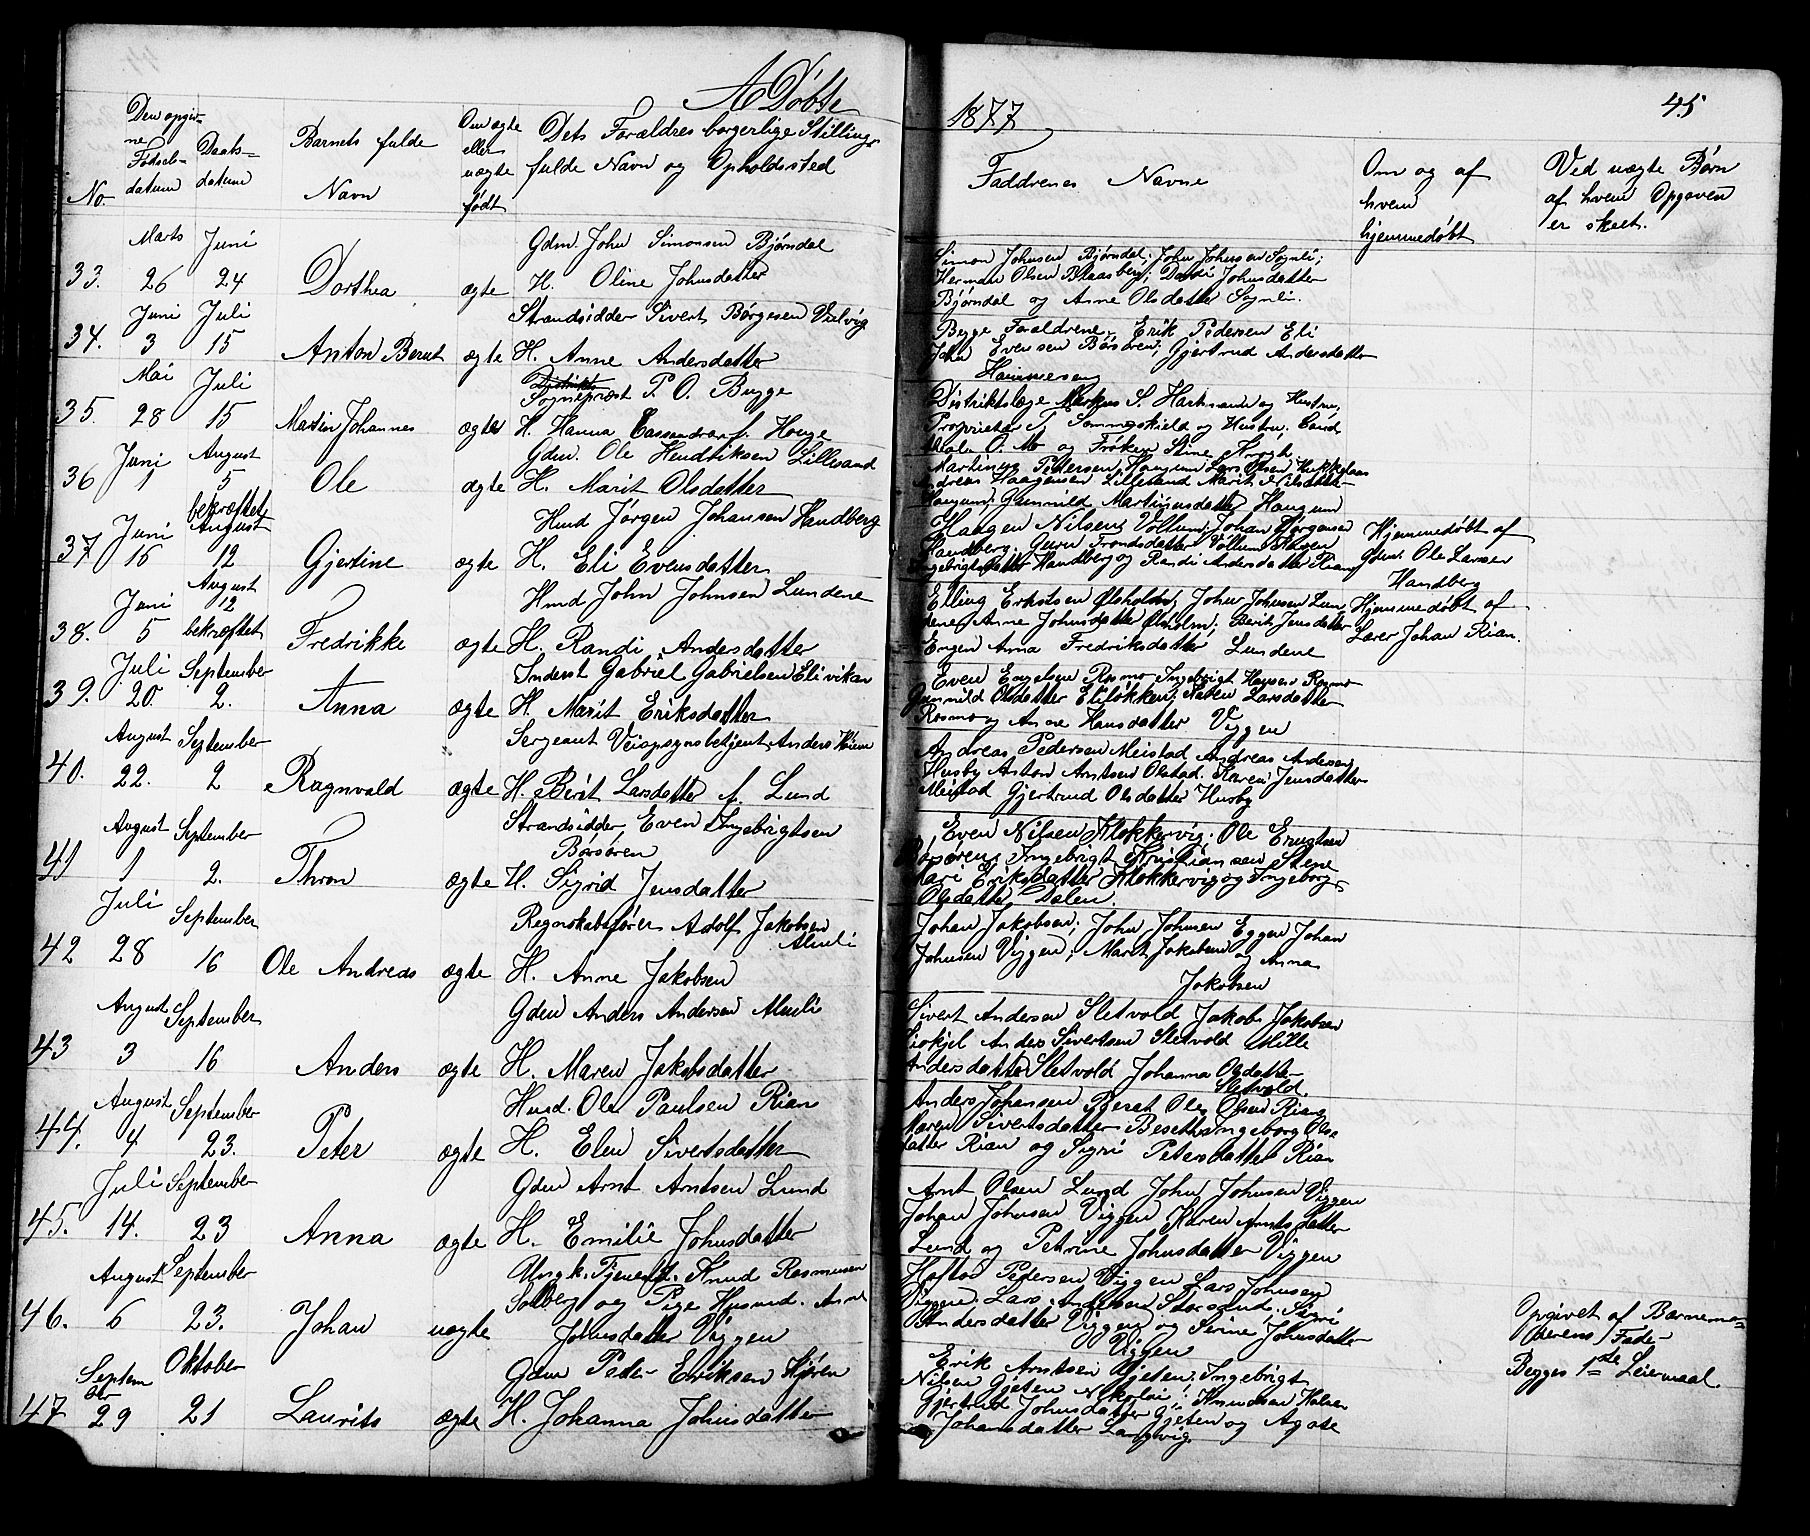 A Døbte
1877
45
No.
Den opgiv-
ne
Fødsels-
datum
Daabs-
datum
Barnets fulde
Navn
Om ægte
eller
uægte
født
Dets Forældres borgerlige Stilling,
fulde Navn og Opholdssted
Faddrenes Navne
Om og af
hvem
hjemmedøbt
Ved uægte Børn
af hvem Opgaven
er skeet.
Marts Juni Gdm. John Simonsen Bjørndal
33. 26 24 Dorthea ægte H. Oline Johnsdatter
Simon Johnsen Bjørndal; John Johnsen Sognli;
Herman Olsen Blaasberg; Johnsdatter
Bjørndal og Anne Olsdatter Sognli.
Juni Juli Strandsidder Sivert Børgesen Viggen
34. 3 15 Anton Bernt ægte H. Anne Andersdatter
Begge Forældrene, Erik Pedersen Eli
John Evensen Børsøren; Gjertrud Andersdatter
Hammeseng
Mai Juli Sognepræst P. O. Bugge
35. 28 15 Martin Johannes ægte H. Hanna Cassandra f. Houge
Distriktslæge Markus S. Hartmann og Hustru,
Proprietær T. Sommerschield og Hustru, Cand.
O. Mo og Frøken Stine Krogh.
Juni August Gdm. Ole Hendriksen Lillesand
36 1 5 Ole ægte H. Marit Olsdatter
Martinus Pedersen Haugum Lars Olsen
Andreas Haagensen Lillesand Marit Nilsdatter
Haugum; Gunnild Martinusdatter Haugum
bekræftet
Juni August Hmd Jørgen Johansen Handberg
37 16 12 Gjertine ægte H. Eli Evensdatter
Haagen Nilsen Vollum; Johan Jørgensen
Handberg. Guru Trondsdatter Vollum
Handberg og Randi Andersdatter Rian
Hjemmedøbt af
Gdm. Ole Larsen
Handberg
August
Juni 12 Hmd John Johnsen Lundene
38. 5 bekræftet Fredrikke ægte H. Randi Andersdatter
Elling Eriksen Øsholm; John Johnsen Lun-
dene, Anne Johnsdatter Øsholm; Berit Jensdatter
Engen Anna Fredriksdatter Lundene
Hjemmedøbt af
Lærer Johan Rian.
Juli September Inderst Gabriel Gabrielsen Elivikan
39. 20. 2. Anna ægte H. Marit Eriksdatter
Even Engelsen Rosmo Ingebrigt Hansen Rosmo
Gunnild Olsdatter Eliløkken; Larsdatter
Rosmo og Anne Hansdatter Viggen
August September Sergeant Veiopsynsbetjent Anders Husby
40. 22. 2 Ragnvald ægte H. Berit Larsdatter f. Lund
Andreas Pedersen Meistad Andreas Andersen
Husby Anton Arntsen Olstad. Karen Jensdatter
Meistad Gjertrud Olsdatter Husby
August September Strandsidder, Even Ingebrigtsen
Børsøren
41 1 2. Thron ægte H. Sigrid Jensdatter
Even Nilsen Klokkervig; Ole Erugtsen
Børsøren; Ingebrigt Kristiansen Stene
Mari Eriksdatter Klokkervig og Ingeborg
Olsdatter Dalen.
Juli September Regnskabsfører Adolf Jakobsen
Almli
42 28 16 Ole Andreas ægte H. Anne Jakobsen
Johan Jakobsen; John Johnsen Eggen Johan
Johnsen Viggen; Marit Jakobsen og Anna
Jakobsen
August September Gdm Anders Andersen Almli
43 3 16 Anders ægte H. Maren Jakobsdatter
Sivert Andersen Sletvold Jakob Jakobsen
Anders Sivertsen Sletvold Mille
Andersdatter Sletvold Johanna Olsdatter
Sletvold.
August September Husd. Ole Paulsen Rian
44. 4 23. Peter ægte H. Elen Sivertsdatter
Anders Johansen Ole Olsen Rian
Maren Sivertsdatter Ingeborg Ols-
datter Rian og Sigri Petersdatter Rian
Juli September Gdm Arnt Arntsen Lund
45. 14. 23 Anna ægte H. Emilie Johnsdatter
Arnt Olsen Lund John Johnsen Viggen
Johan Johnsen Viggen Karen Arntsdatter
Lund og Petrine Johnsdatter Viggen
August September Ungk. Tjenend. Knud Rasmusen
46. 6 23. Johan uægte Solberg og Pige Husmd. Anne
Johnsdatter Viggen
Haftor Pedersen Viggen Lars Johnsen
Viggen. Lars Andersen Storsand. Sigri
Andersdatter Viggen og Serine Johnsdatter
Viggen
Opgivet af Barnemo-
derens Fader
Begges 1ste Leiermaal.
Septem
ber Oktober Gdm Peder Eriksen Kjøren
47 29 21 Laurits ægte H. Johanna Johnsdatter
Erik Arntsen Gjeten; Ingebrigt
Nilsen Gjeten Nikolai Knudsen
Gjertrud Johnsdatter Gjeten og Agate
Johansdatter Langvig.